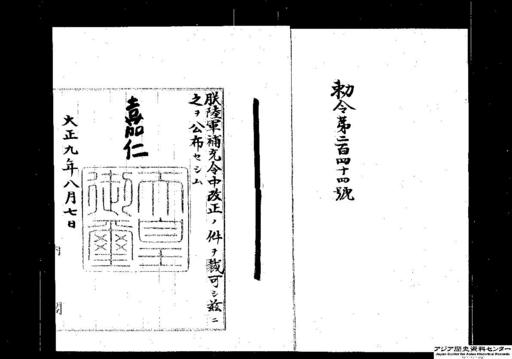 勅令第二百四十四號
朕陸軍補充令中改正ノ件ヲ裁可シ玆ニ
之ヲ公布セシム
嘉仁
天皇
御璽
大正九年八月七日
アジア歴史資料センター
Japan Center for Asian Historical Records